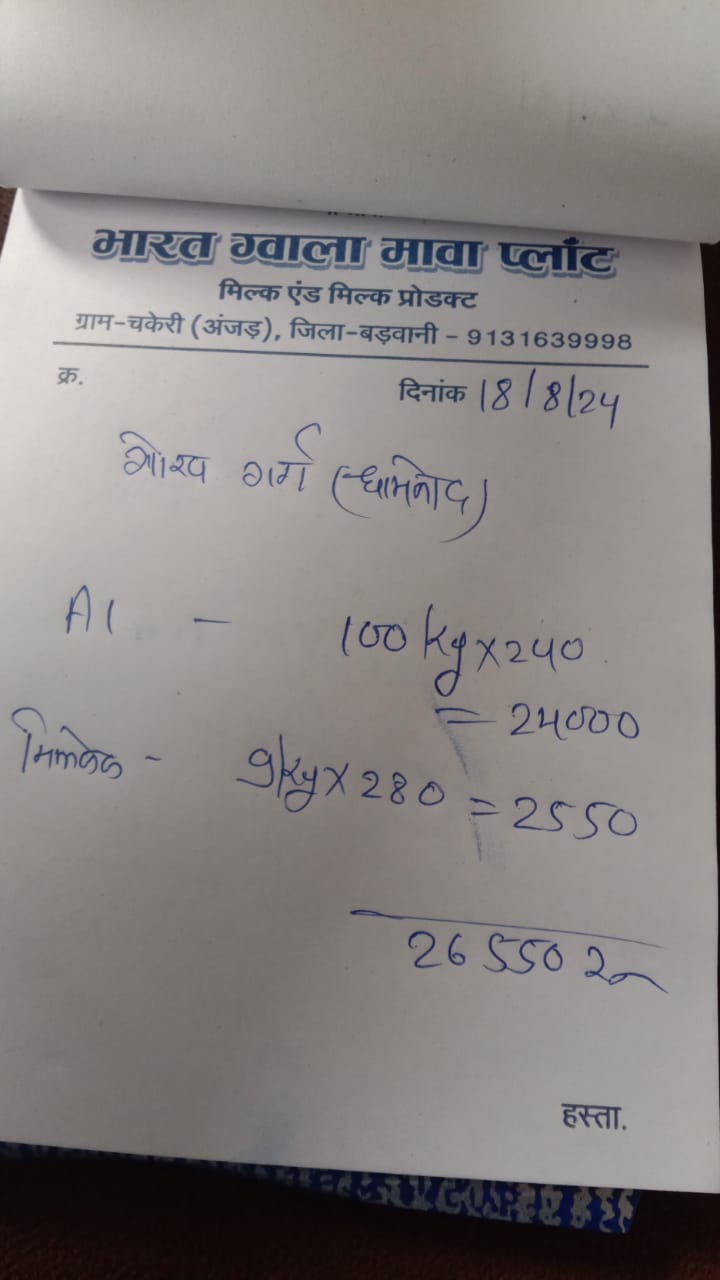 भारत ग्वाला मावा प्लाँट
मिल्क एंड मिल्क प्रोडक्ट
ग्राम-चकेरी (अंजड़), जिला-बड़वानी - 9131639998
क्र. दिनांक 18/8/24
गर्ग (धामनोद)
A1 - 100 kg x 240
= 24000
मिल्ककेक - 9 kg x 280 = 2550
26550 रु
हस्ता.